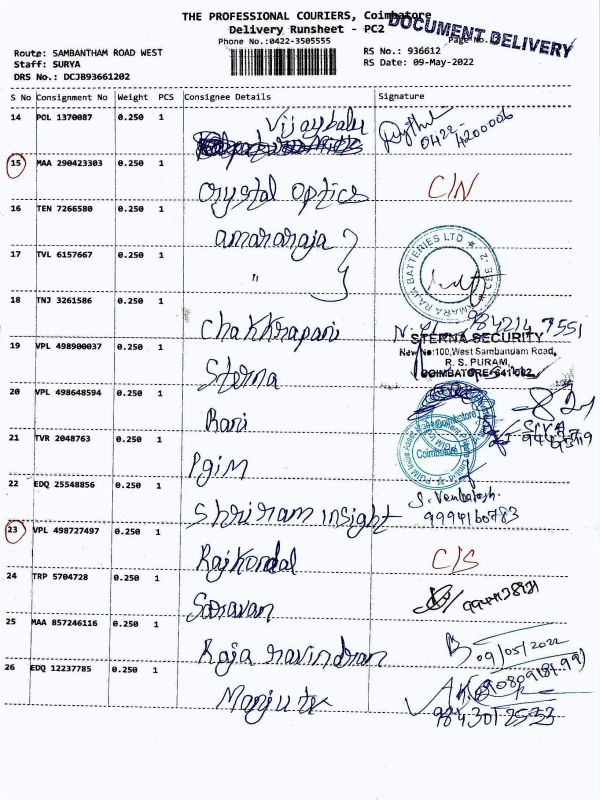 THE PROFESSIONAL COURIERS, Coimbatore
Delivery Runsheet - PC2
DOCUMENT DELIVERY
Phone No.:0422-3505555
Page No.
Route: SAMBANTHAM ROAD WEST
RS No.: 936612
Staff: SURYA
RS Date: 09-May-2022
DRS No.: DCJB93661202
S No Consignment No Weight PCS Consignee Details Signature
14 POL 1370087 0.250 1 Vijaybabu 0422-4200006
15 MAA 290423303 0.250 1 Crystal optics C/N
16 TEN 7266580 0.250 1 amararaja
17 TVL 6157667 0.250 1 "
AMARA RAJA BATTERIES LTD CBE-2
18 TNJ 3261586 0.250 1 Chakkrapani
19 VPL 498900037 0.250 1 Sterna
STERNA SECURITY
New No:100,West Sambandam Road,
R. S. PURAM,
COIMBATORE-641 002
20 VPL 498648594 0.250 1 Rani
21 TVR 2048763 0.250 1 Pgim
Coimbatore
22 EDQ 25548856 0.250 1 Shriram insight S. Venkatesh
9994160783
23 VPL 498727497 0.250 1 C/S
24 TRP 5704728 0.250 1 Saravan
25 MAA 857246116 0.250 1 Raja ravindran 09/05/2022
26 EDQ 12237785 0.250 1